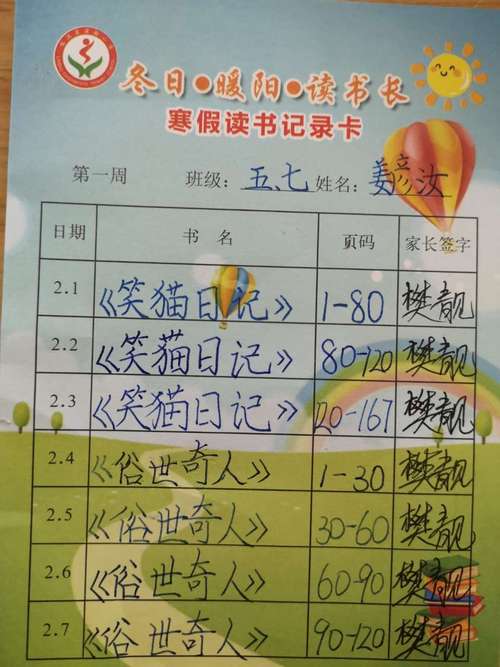 冬日●暖阳●读书长
寒假读书记录卡
第一周 班级：五、七 姓名：姜彦汝
日期 书 名 页码 家长签字
2.1 《笑猫日记》 1-80 樊靓
2.2 《笑猫日记》 80-120 樊靓
2.3 《笑猫日记》 120-167 樊靓
2.4 《俗世奇人》 1-30 樊靓
2.5 《俗世奇人》 30-60 樊靓
2.6 《俗世奇人》 60-90 樊靓
2.7 《俗世奇人》 90-120 樊靓